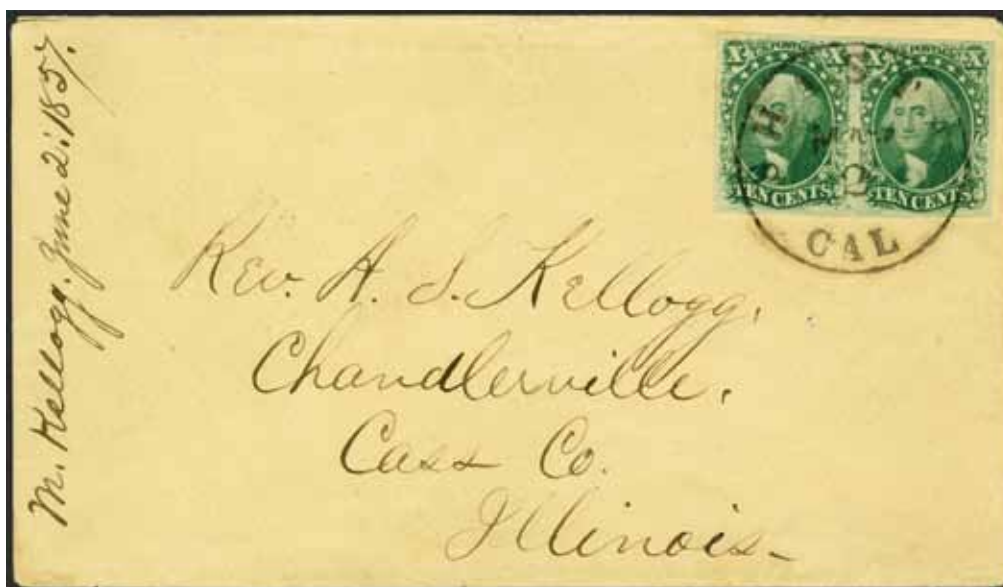 M. Kellogg. June 2. 1857.
X U.S. POSTAGE X
X U.S. POSTAGE X
TEN CENTS
TEN CENTS
2
CAL
Rev. A. S. Kellogg.
Chandlerville.
Cass Co.
Illinois